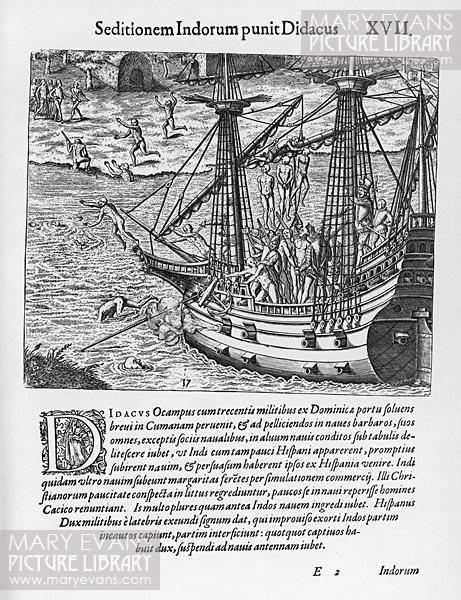 Seditionem Indorum punit Didacus XVII.
MARY EVANS
PICTURE LIBRARY
MARY EVANS
PICTURE LIBRARY
17
DIDACVS Ocampus cum trecentis militibus ex Dominicæ portu soluens
breui in Cumanam peruenit, & ad pelliciendos in naues barbaros, suos
omnes, exceptis sociis naualibus, in aluum nauis conditos sub tabulis de-
litescere iubet, vt Indi cum tam pauci Hispani apparerent, promptius
subirent nauim, & persuasum haberent ipsos ex Hispania venire. Indi
quidam vltro nauim subeunt margaritas ferētes per simulationem commercij. Illi Chri-
stianorum paucitate conspecta in littus regrediuntur, paucos se in naui reperisse homines
Cacico renuntiant. Is multo plures quam antea Indos nauem ingredi iubet. Hispanus
Dux militibus è latebris exeundi signum dat, qui improuiso exorti Indos partim
incautos capiunt, partim interficiunt: quotquot captiuos ha-
buit dux, suspendi ad nauis antennam iubet.
E 2 Indorum
MARY EVANS
PICTURE LIBRARY
www.maryevans.com
MARY EVANS
PICTURE LIBRARY